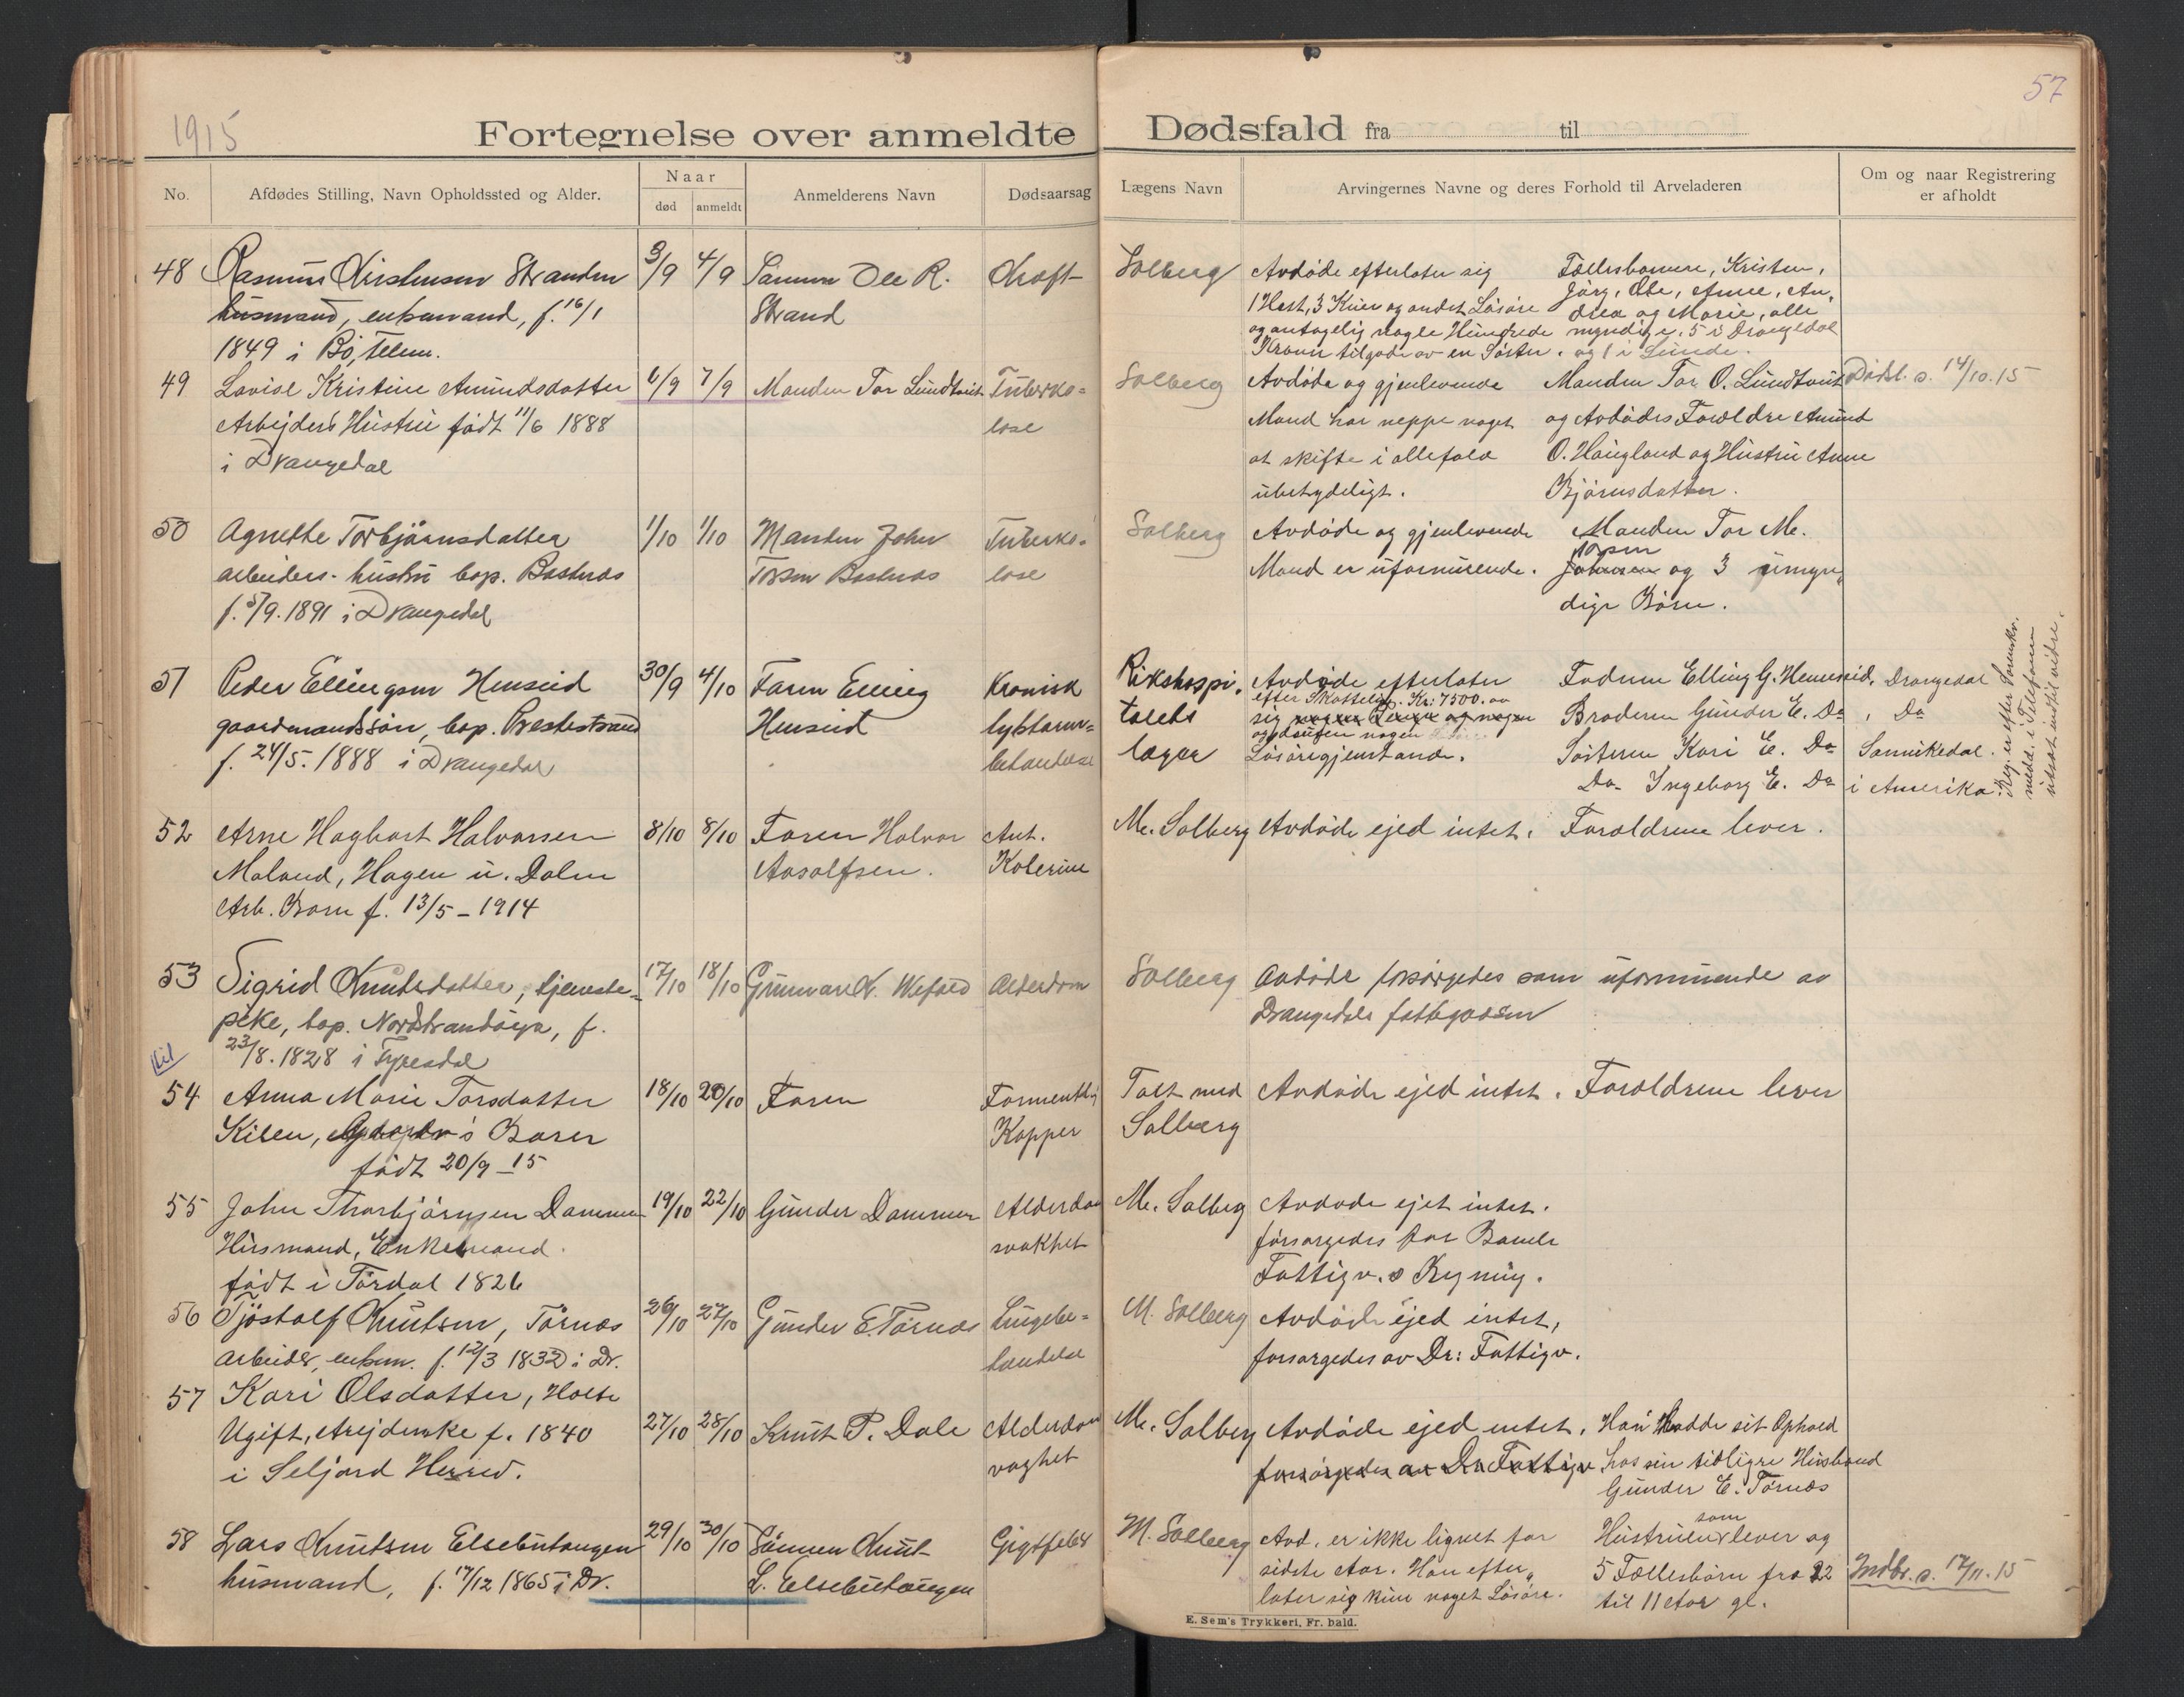 1915
57
Fortegnelse over anmeldte Dødsfald fra til
No.
Afdødes Stilling, Navn Opholdssted og Alder.
Naar
død
anmeldt
Anmelderens Navn
Dødsaarsag
Lægens Navn
Arvingernes Navne og deres Forhold til Arveladeren
Om og naar Registrering
er afholdt
48 Rasmus Kristensen Stranden 3/9 4/9 Sønnen Ole R. Kræft Solberg Avdøde efterlater sig Fællesbarnene, Kristen,
husmand, enkemand, f. 16/1 Strand 1 Hest, 3 Kuer og andet Løsøre Jörg, Ole, Anne, An-
1849 i Bø, Telem. og antagelig nogle Hundrede drea og Marie, alle
Kroner tilgode av en Søster. myndige, 5 i Drangedal
og 1 i Lunde.
49 Lovise Kristine Amundsdatter 6/9 7/9 Manden Tor Lundtveit Tuberko- Solberg Avdøde og gjenlevende Manden Tor O. Lundtveit Dødsf. a. 14/10.15
Arbejders Hustru født 11/6 1888 lose Mand har neppe noget og Avdødes Forældre Amund
i Drangedal at skifte i allefald O. Haugland og Hustru Anne
ubetydeligt. Bjørnsdatter.
50 Agnethe Torbjørnsdatter 1/10 1/10 Manden John Tuberko- Solberg Avdøde og gjenlevende Manden Tor M.
arbeiders-hustru bop. Bostrøs Torsen Bostrøs lose Mand er uformuende. Johnsen Torsen og 3 umyn-
f. 5/9.1891 i Drangedal dige Børn.
51 Peder Ellingsen Henseid 30/9 4/10 Faren Elling Kronisk Rikshospi- Avdøde efterlater Faderen Elling G. Henseid, Drangedal
gaardmandssøn, bop. Prestestrand Henseid talets efter Skattelign. Kr: 7500.00
f. 24/5.1888 i Drangedal læger sig nogen Penge og nogen Broderen Gunder E. Do , Do
og desuten nogen
Løsøregjenstande. Søsteren Kari E. Do Sannikedal.
Do. Ingeborg E. Do i Amerika.
Reg. er efter
medd. i Telefonen
utsat indtil videre.
52 Arne Hagbart Halvorsen 8/10 8/10 Faren Halvor Aut. M. Solberg Avdøde ejed intet. Forældrene lever.
Moland, Hagen u. Dalen Aasolfsen. Kolerine
Arb. Barn f. 13/5 - 1914
53 Sigrid Knutsdatter, tjeneste- 17/10 18/10 Gunnar K. Alderdom Solberg Avdøde forsørgedes som uformuende av
pike, bop. Nordstrandøya, f. Drangedals fattigvæsen
23/8.1828 i Fyresdal
54 Anna Marie Torsdatter 18/10 20/10 Faren Formentli Talt med Avdøde ejed intet. Forældrene lever
Kilen, Barn Kopper Solberg
født 20/9 - 15
55 John Thorbjørnsen Dammen 19/10 22/10 Gunder Dammen Alderdom M. Solberg Avdøde ejet intet.
Husmand, Enkemand. svakhet forsørgedes for Bamle
født i Tørdal 1826 Fattigv.s Regning.
56 Tjøstolf Knutsen, Tørnæs 26/10 27/10 Gunder E. Tørnæs Lungebe- M. Solberg Avdøde ejed intet,
arbeider, enkem. f. 12/3 1832 i Dr. tændelse forsørgedes av Dr: Fattigv.
57 Kari Olsdatter, Holte
Ugift, Arejdenke f. 1840 27/10 28/10 Knut P. Dale Alderdom M. Solberg Avdøde ejed intet. Hun hadde sit Ophold
i Seljord Herred. vaghet forsørgedes av Dr Fattigv hos sin tidligre Husbond
Gunder E. Tørnæs
58 Lars Knutsen Elsebutangen 29/10 30/10 Sønnen Knut Gigtfeber M. Solberg Avd. er ikke lignet for Hustruen som lever og
husmand, f. 17/12 1865 i Dr. L. Elsebutangen sidste Aar. Han efter- 5 Fællesbørn fra 22 Indb. a. 17/11.15
later sig kun noget Løsøre. til 11 Aar gl.
E. Sem's Trykkeri, Fr. hald.